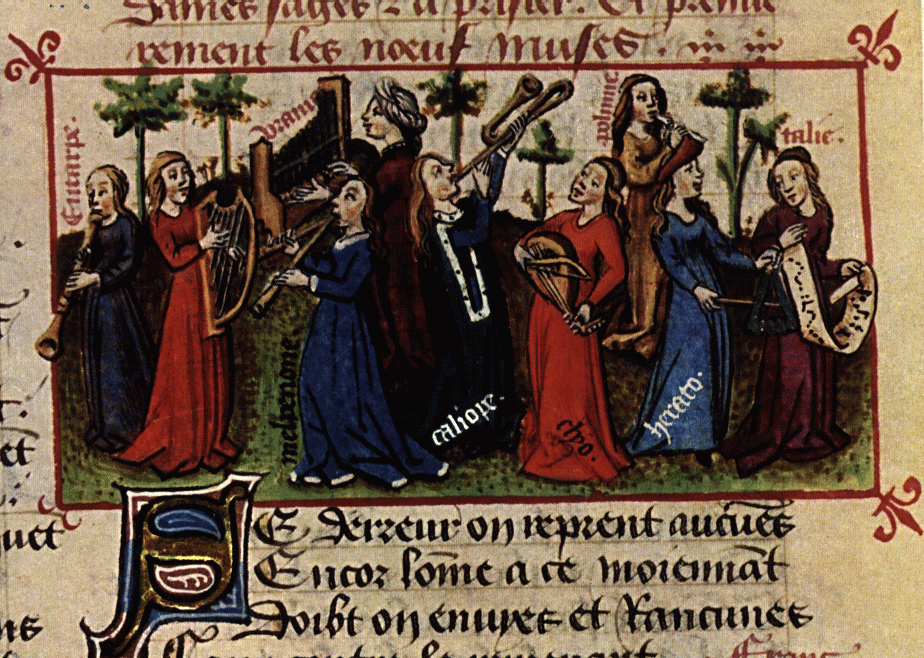 Dames sages z a priser. Et premie
rement les noeuf muses.
Eutarpe.
vranie
polimnie
talie.
melpemone
caliope.
clyo.
herato.
SE derreur on reprent aucuēs
Encor sōme a ce moiennāt
Doibt on enuyes et Rancunes
et
uet
ns